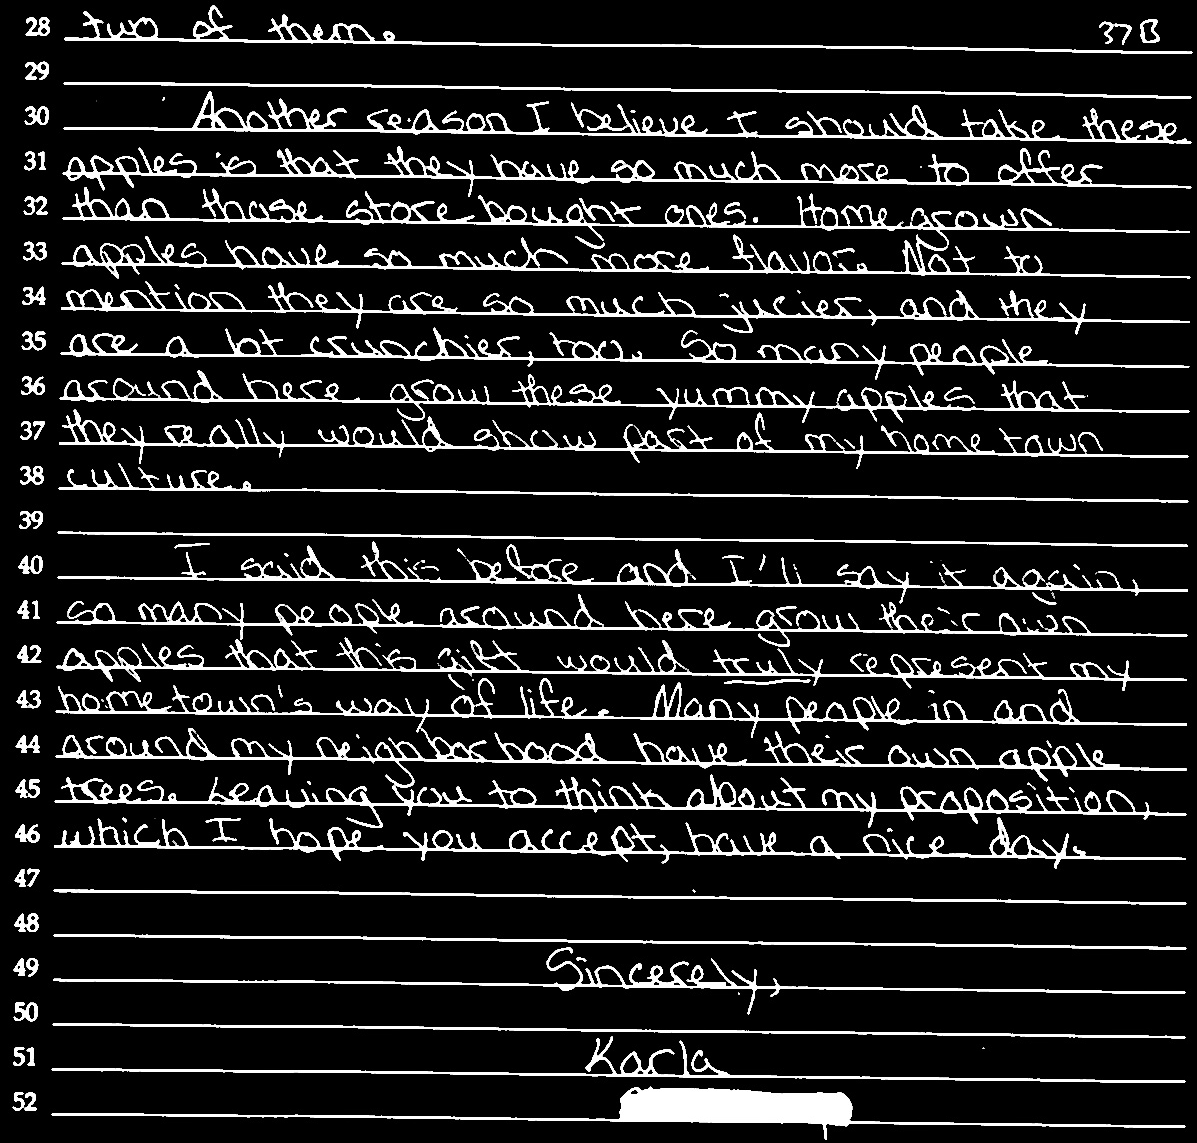 28 two of them. 37B
29
30 Another reason I believe I should take these
31 apples is that they have so much more to offer
32 than those store bought ones. Homegrown
33 apples have so much more flavor. Not to
34 mention they are so much jucier, and they
35 are a lot crunchier, too. So many people
36 around here grow these yummy apples that
37 they really would show part of my hometown
38 culture.
39
40 I said this before and I'll say it again,
41 so many people around here grow their own
42 apples that this gift would truly represent my
43 hometown's way of life. Many people in and
44 around my neighborhood have their own apple
45 trees. Leaving you to think about my proposition,
46 which I hope you accept, have a nice day.
47
48
49 Sincerely,
50
51 Karla
52